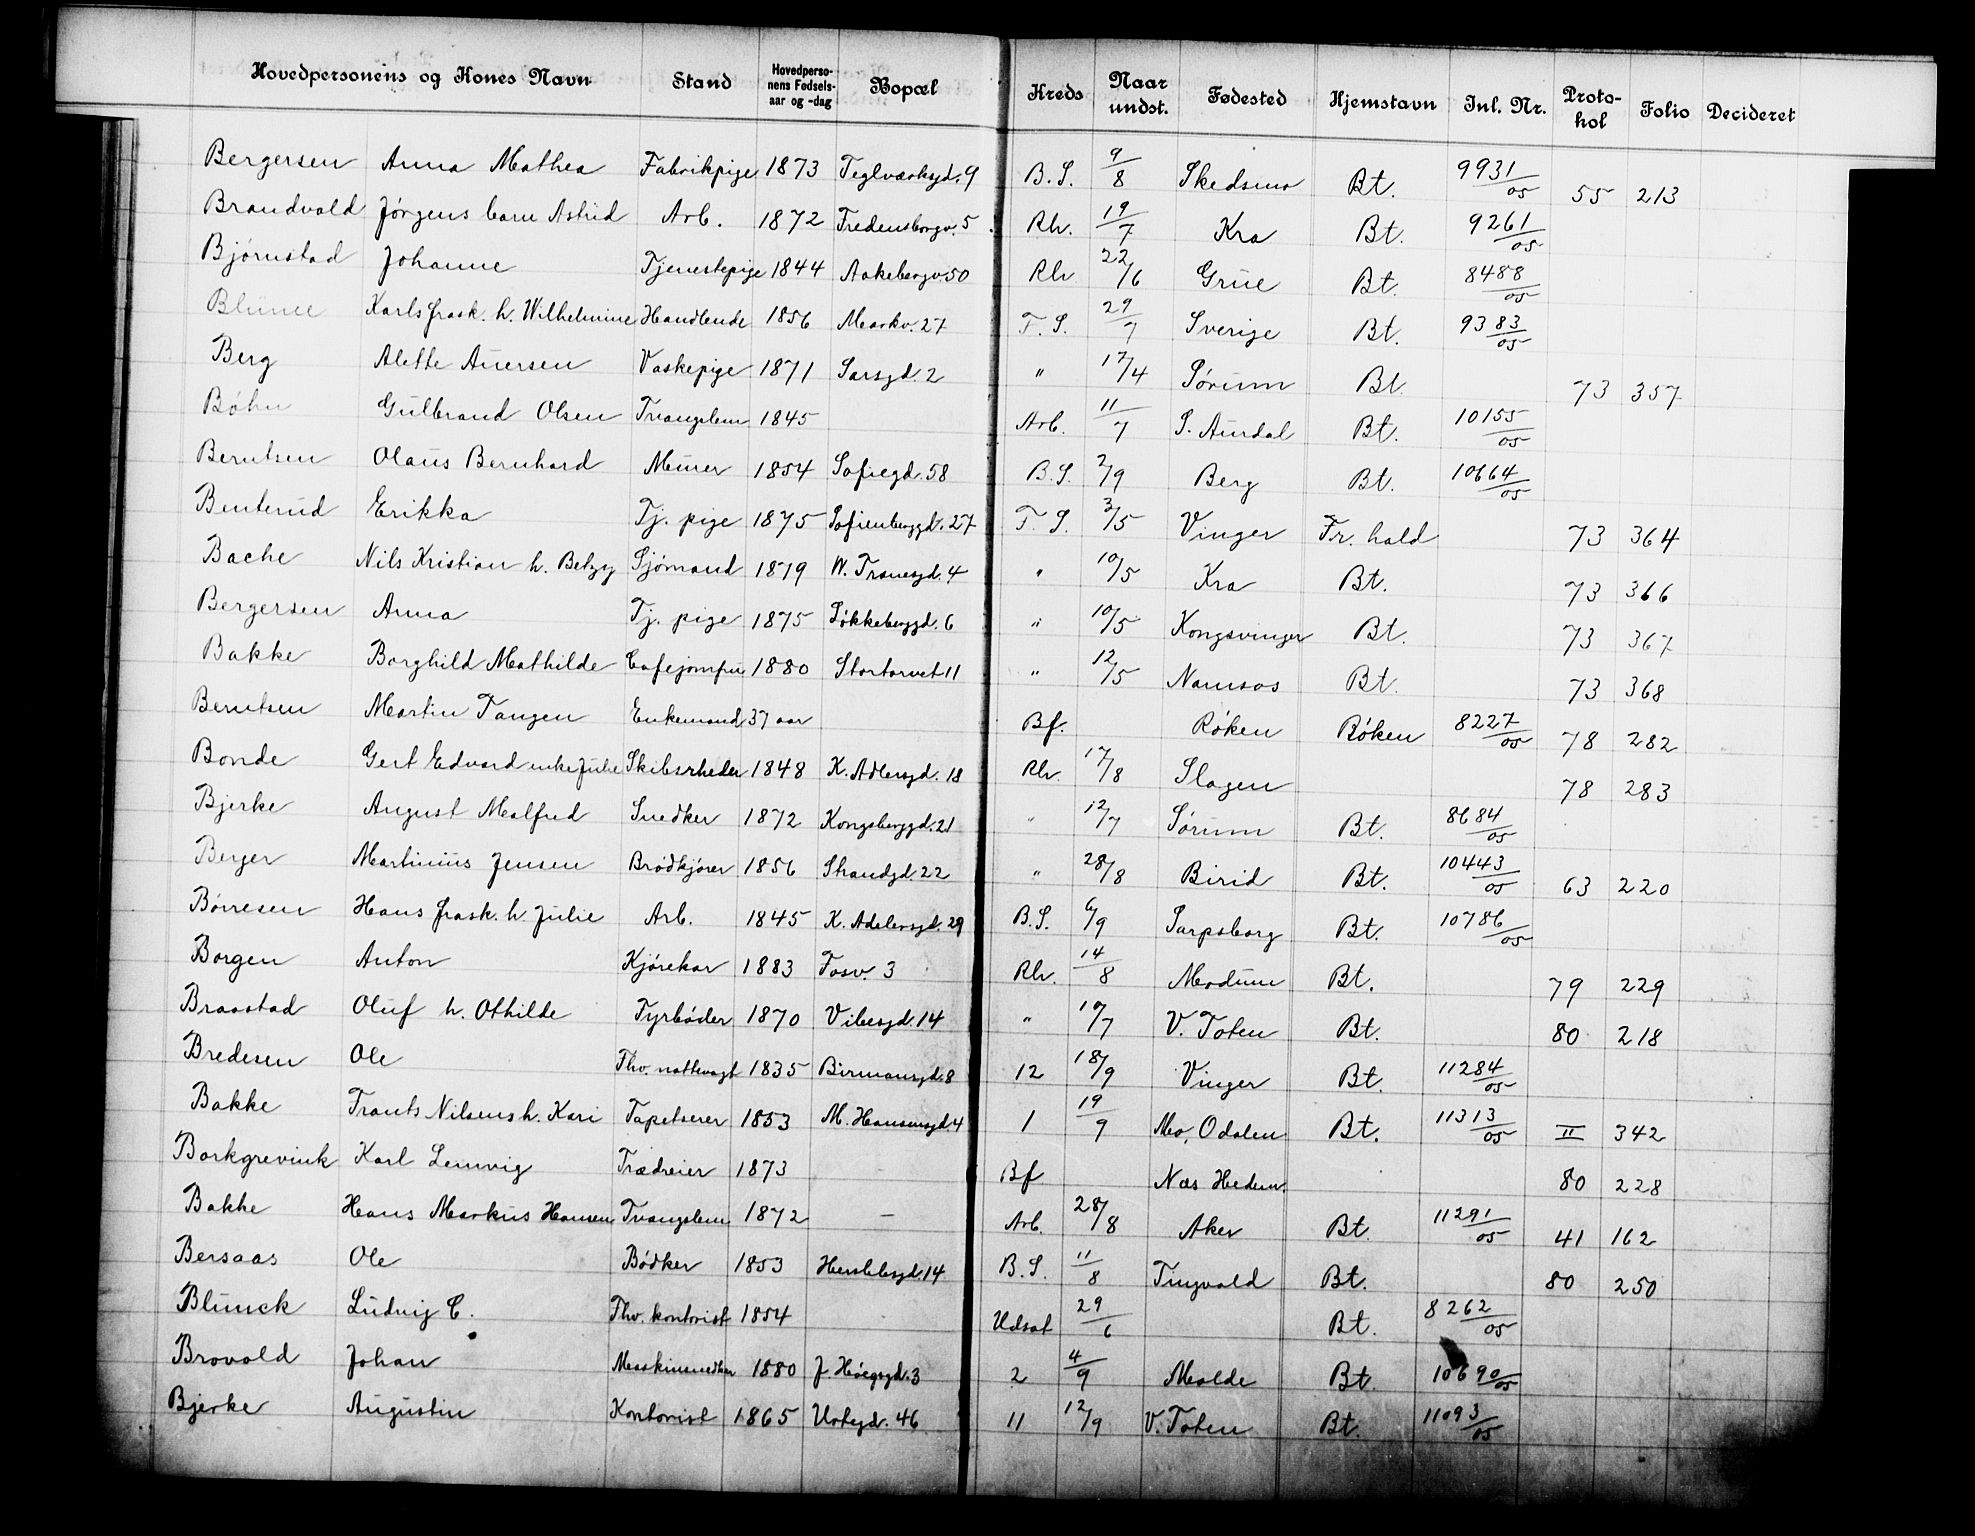 Hovedpersonens og Kones Navn Stand Hovedpersonens Fødselsaar og -dag Bopæl Kreds Naar undst. Fødested Hjemstavn Inl. Nr. Protokol Folio Decideret
Bergersen Anna Mathea Fabrikpige 1873 Teglværksgd. 9 B. S. 9/8 Skedsmo Bt. 9931/05 55 213
Brandvold Jørgens barn Astrid Arb. 1872 Fredensborgv. 5 Rh. 19/7 Kra Bt. 9261/05
Bjørnstad Johanne Tjenestepige 1844 Aakebergv. 50 Rh 22/6 Grue Bt. 8488/05
Karls frask. h. Wilhelmine Handlende 1856 Markv. 27 F. S. 29/7 Sverige Bt. 9383/05
Berg Alette Auersen Vaskepige 1871 Sarsgd. 2 " 17/4 Sørum Bt. 73 357
Bøhn Gulbrand Olsen Tvangslem 1845 Arb. 11/7 S. Aurdal Bt. 10155/05
Berntsen Olaus Bernhard Murer 1854 Sofiegd. 58 B. S. 2/9 Berg Bt. 10664/05
Benterud Erikka Tj. pige 1875 Sofienberggd. 27 F. S. 3/5 Vinger Fr. hald 73 364
Bache Nils Kristian h. Betzy Sjømand 1879 W. Tranesgd. 4 " 10/5 Kra Bt. 73 366
Bergersen Anna Tj. pige 1875 Løkkeberggd. 6 " 10/5 Kongsvinger Bt. 73 367
Bakke Borghild Mathilde Cafejomfru 1880 Stortorvet 11 " 12/5 Namsos Bt. 73 368
Berntsen Martin Tangen Enkemand 37 aar Bf. Røken Røken 8227/05 78 282
Bonde Gert Edvard enke Julie Skibsrheder 1848 K. Adlersgd. 18 Rh. 17/8 Slagen 78 283
Bjerke August Malfred Snedker 1872 Kongsberggd. 21 " 12/7 Sørum Bt. 8684/05
Berger Martinius Jensen Brødkjører 1856 Strandgd. 22 " 28/8 Birid Bt. 10443/05 63 220
Børresen Hans frask. h. Julie Arb. 1845 K. Adelersgd. 29 B. S. 6/9 Sarpsborg Bt. 10786/05
Borgen Anton Kjørekar 1883 Fosv. 3 Rh. 14/8 Modum Bt. 79 229
Braastad Oluf h. Othilde Fyrbøder 1870 Vibesgd. 14 " 10/7 V. Toten Bt. 80 218
Bredesen Ole Fhv. nattevagt 1835 Birmansgd. 8 12 18/9 Vinger Bt. 11284/05
Bakke Frants Nilsens h. Kari Tapetserer 1853 M. Hansensgd. 4 1 19/9 Mo, Odalen Bt. 11313/05 II 342
Borkgrevink Karl Lemvig Trædreier 1873 Bf Nes Hedem. 80 228
Bakke Hans Markus Hansen Tvangslem 1872 — Arb. 28/8 Aker Bt. 11291/05 41 162
Bersaas Ole Bødker 1853 Herslebsgd. 14 B. S. 11/8 Tingvold Bt. 80 250
Blunck Ludvig C. Fhv. kontorist 1854 Udsat 29/6 Bt. 8262/05
Brovold Johan Maskinsnedker 1880 J. Høegsgd. 3 2 4/9 Molde Bt. 10690/05
Bjerke Augustin Kontorist 1865 Urtegd. 46 11 12/9 V. Toten Bt. 11093/05